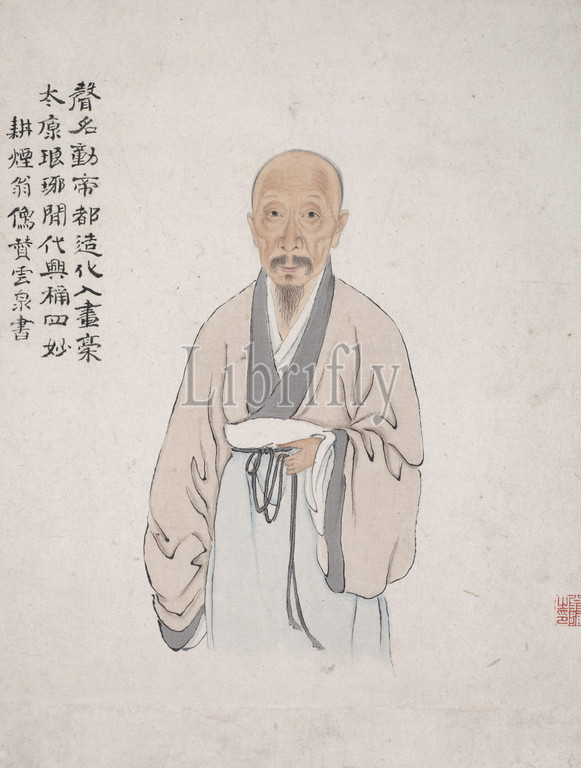 聲名動帝都造化入畫稾
太原琅琊間代興稱四妙
耕煙翁像贊雲泉書
Librifly